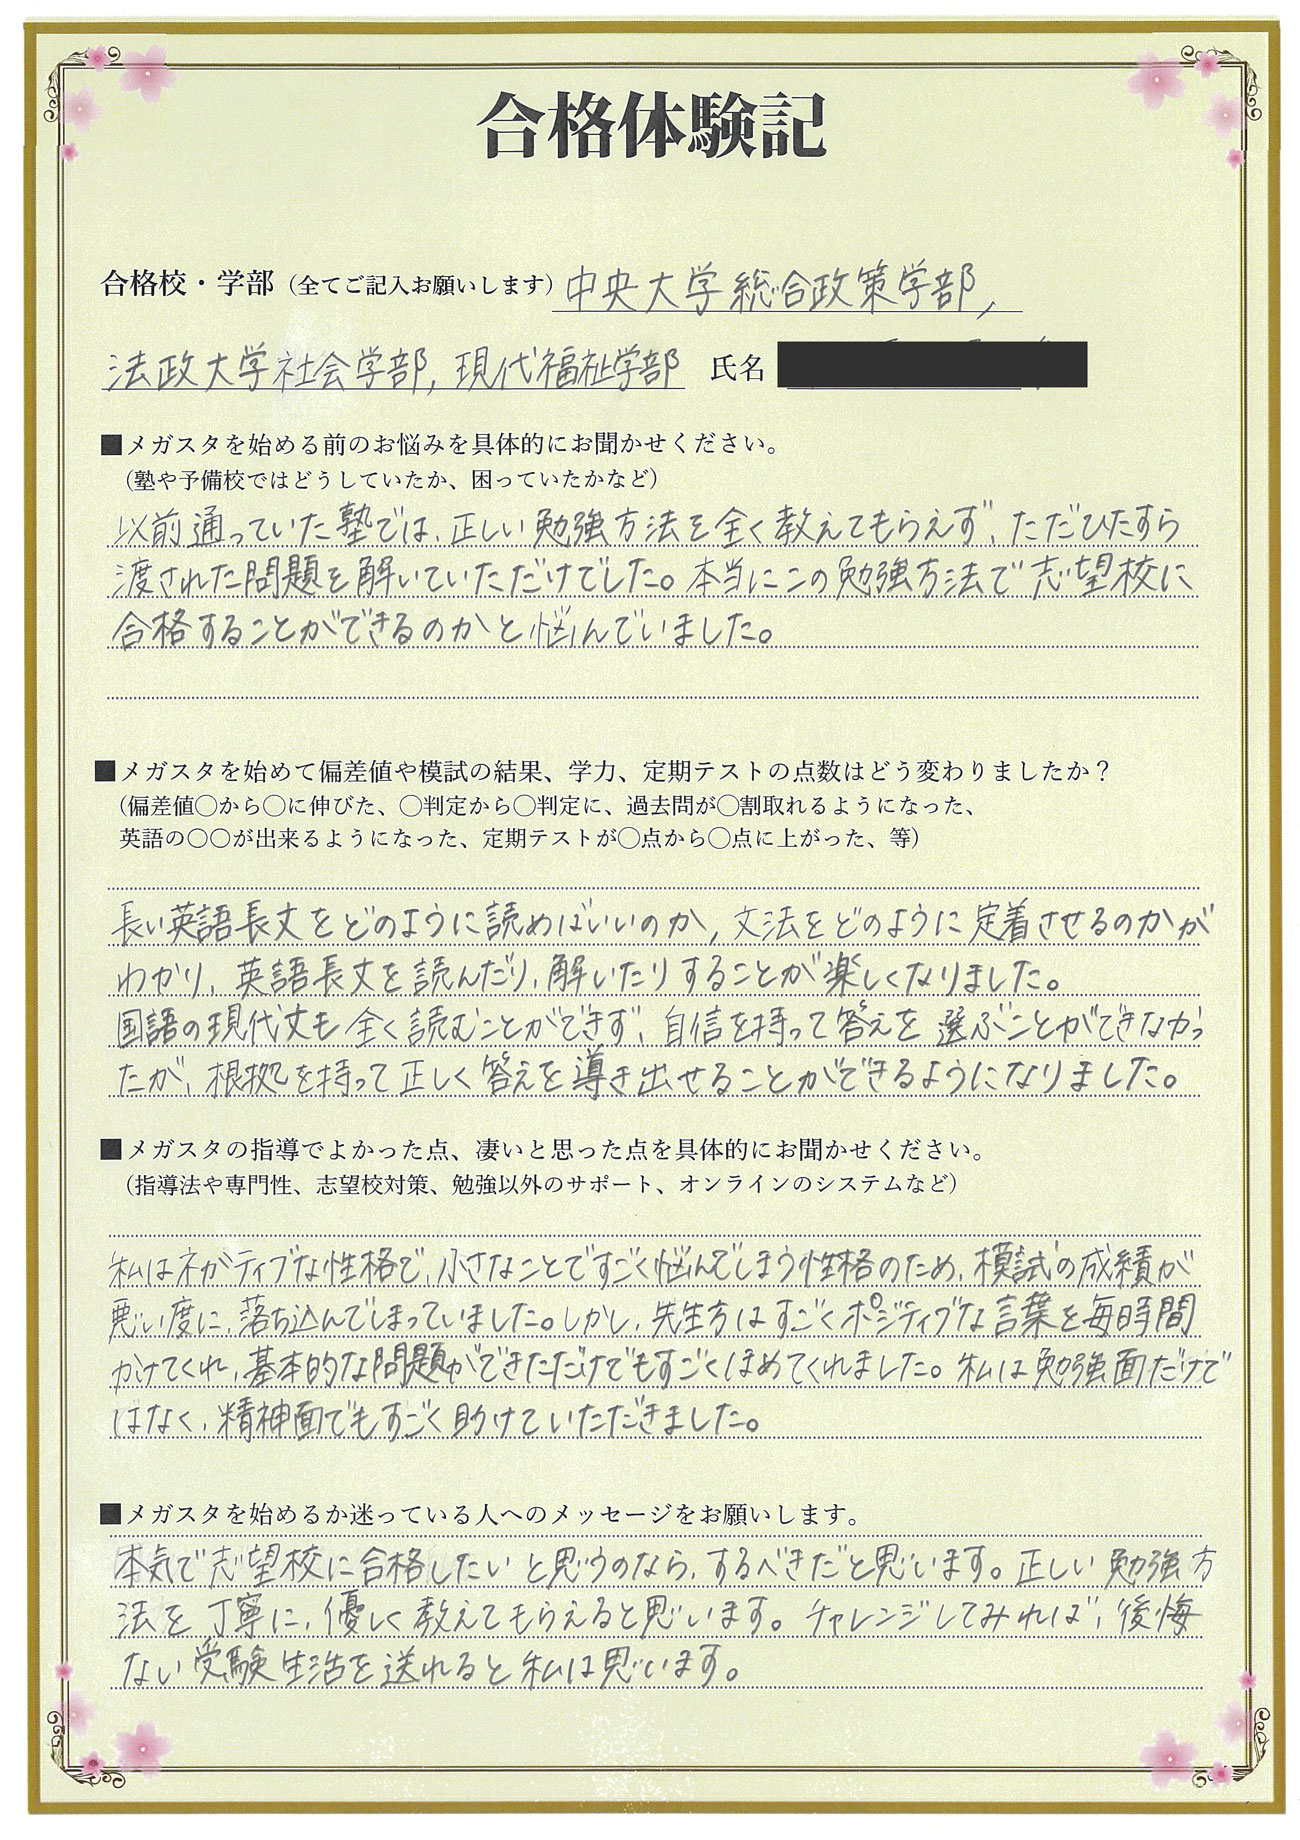 合格体験記
合格校・学部（全てご記入お願いします）中央大学総合政策学部,
法政大学社会学部, 現代福祉学部 氏名
■メガスタを始める前のお悩みを具体的にお聞かせください。
（塾や予備校ではどうしていたか、困っていたかなど）
以前通っていた塾では、正しい勉強方法を全く教えてもらえず、ただひたすら
渡された問題を解いていただけでした。本当にこの勉強方法で志望校に
合格することができるのかと悩んでいました。
■メガスタを始めて偏差値や模試の結果、学力、定期テストの点数はどう変わりましたか？
（偏差値〇から〇に伸びた、〇判定から〇判定に、過去問が〇割取れるようになった、
英語の〇〇が出来るようになった、定期テストが〇点から〇点に上がった、等）
長い英語長文をどのように読めばいいのか, 文法をどのように定着させるのかが
わかり、英語長文を読んだり、解いたりすることが楽しくなりました。
国語の現代文も全く読むことができず、自信を持って答えを選ぶことができなかっ
たが、根拠を持って正しく答えを導き出せることができるようになりました。
■メガスタの指導でよかった点、凄いと思った点を具体的にお聞かせください。
（指導法や専門性、志望校対策、勉強以外のサポート、オンラインのシステムなど）
私はネガティブな性格で、小さなことですごく悩んでしまう性格のため、模試の成績が
悪い度に、落ち込んでしまっていました。しかし、先生方はすごくポジティブな言葉を毎時間
かけてくれ、基本的な問題ができただけでもすごくほめてくれました。私は勉強面だけで
はなく、精神面でもすごく助けていただきました。
■メガスタを始めるか迷っている人へのメッセージをお願いします。
本気で志望校に合格したいと思うのなら、するべきだと思います。正しい勉強方
法を丁寧に、優しく教えてもらえると思います。チャレンジしてみれば、後悔
ない受験生活を送れると私は思います。